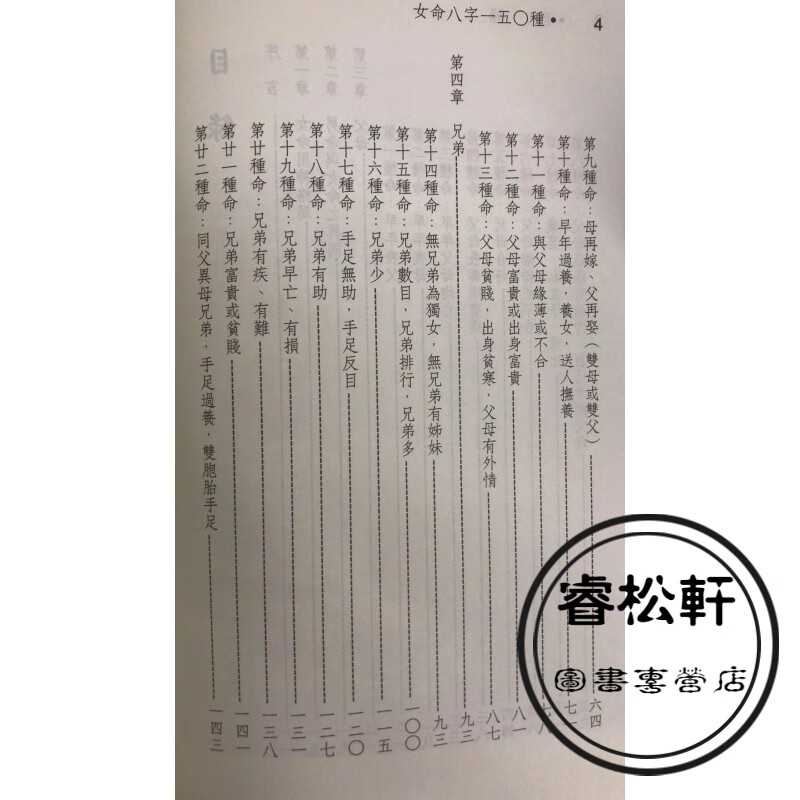 女命八字一五〇種• 4
第九種命：母再嫁、父再娶（雙母或雙父）六四
第十種命：早年過養，養女，送人撫養 七
第十一種命：與父母緣薄或不合 七
第十二種命：父母富貴或出身富貴 八一
第十三種命：父母貧賤，出身貧寒，父母有外情 八七
第四章 兄弟 九三
第十四種命：無兄弟為獨女，無兄弟有姊妹 九三
第十五種命：兄弟數目，兄弟排行，兄弟多 一〇〇
第十六種命：兄弟少 一一五
第十七種命：手足無助，手足反目 一二〇
第十八種命：兄弟有助 一二七
第十九種命：兄弟早亡、有損 一三一
第廿種命：兄弟有疾、有難 一三八
第廿一種命：兄弟富貴或貧賤 一四一
第廿二種命：同父異母兄弟，手足過養，雙胞胎手足 一四三
睿松軒
圖書專營店